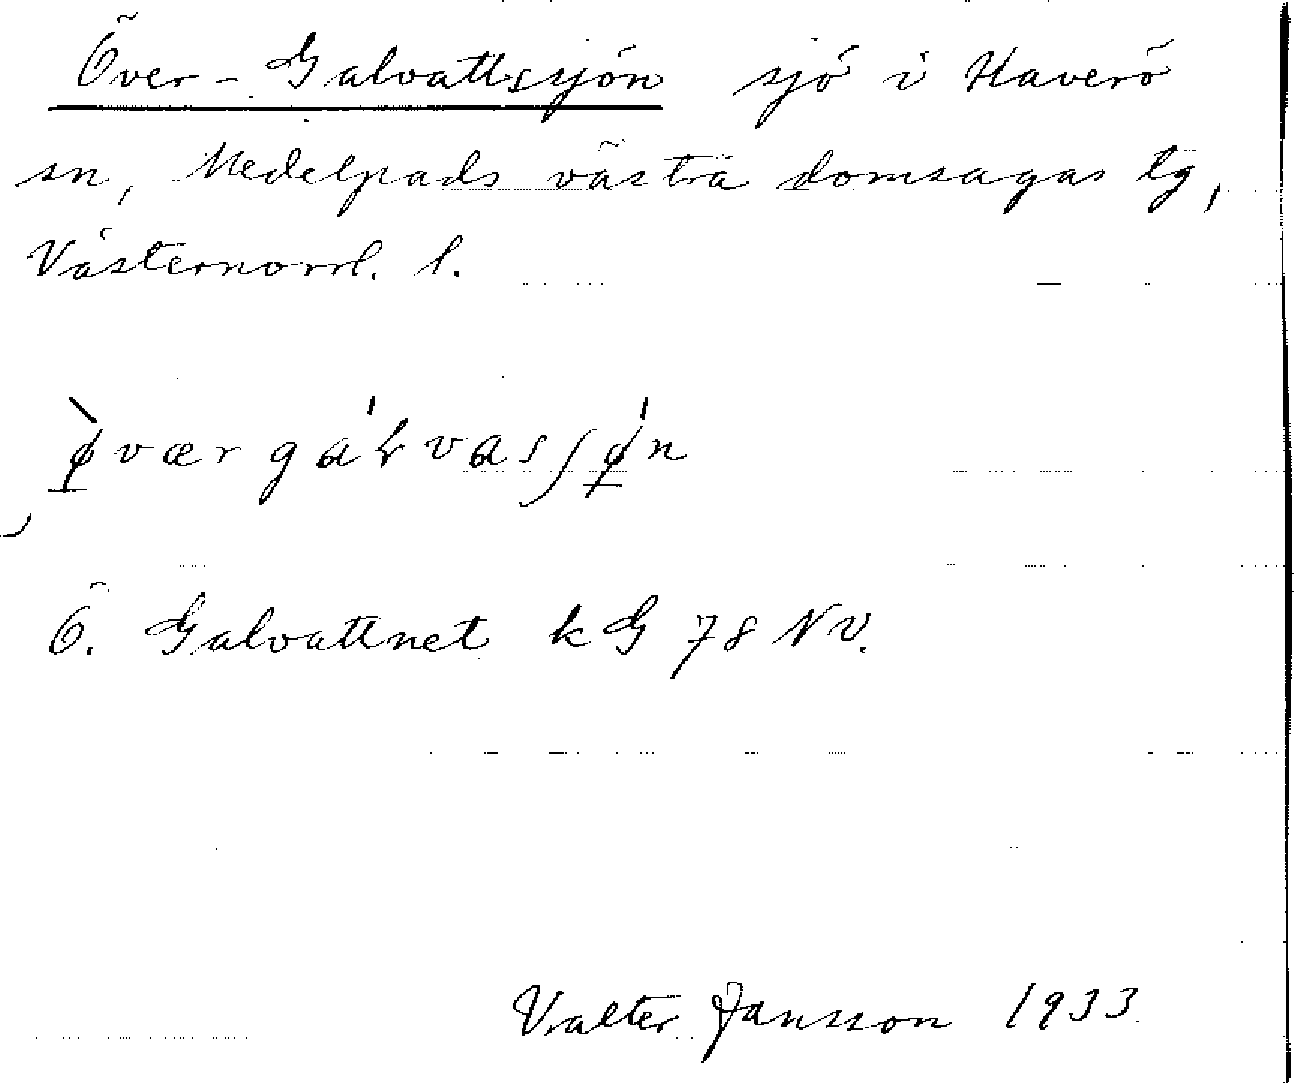 Över-Galvattssjön sjö i Haverö
sn, Medelpads västra domsagas tg,
Västernorrl. l.
ø̀værgáƚvasʃǿn
Ö. Galvattnet kG 78 NV.
Valter Jansson 1933